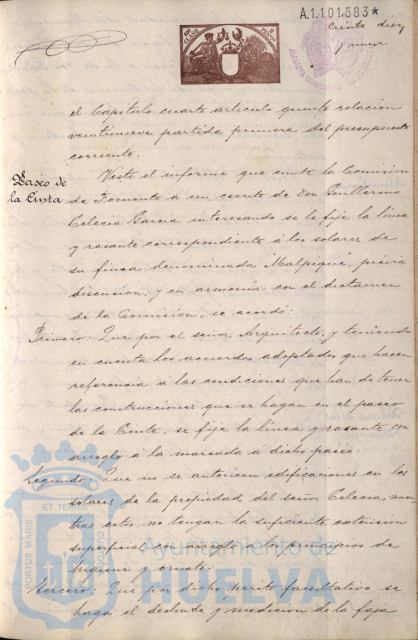 A.1.101.583*
Ciento diez
y nueve
el Capítulo cuarto artículo quinto relacion
veintinueve partida primera del presupuesto
corriente.
Paseo de
la Cinta
Visto el informe que emite la Comision
de Fomento á un escrito de Don Guillermo
Celecia Garcia interesando se le fije la línea
y rasante correspondiente á los solares de
su finca denominada "Malpique", previa
discusion, y en armonía con el dictamen
de la Comision, se acordó:
Primero: Que por el señor Arquitecto, y teniendo
en cuenta los acuerdos adoptados que hacen
referencia á las condiciones que han de tener
las construcciones que se hagan en el paseo
de la Cinta, se fije la línea y rasante con
arreglo á la marcada á dicho paseo.
Segundo: Que no se autoricen edificaciones en los
solares de la propiedad del señor Celecia, mien-
tras estos no tengan la suficiente extension
superficial con arreglo á los principios de
higiene y ornato.
Tercero: Que por dicho perito facultativo se
haga el deslinde y medicion de la faja
PORTUS MARIS
ET TERRAE
CUSTODIA
Ayuntamiento de
HUELVA